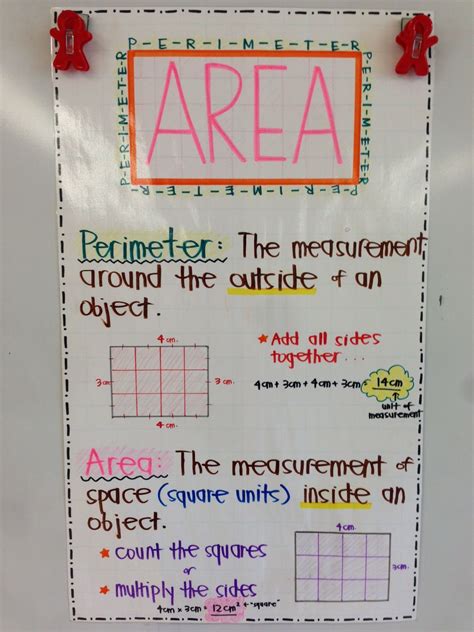 P-E-R-I-M-E-T-E-R
P-E-R-I-M-E-T-E-R
AREA
P-E-R-I-M-E-T-E-R
P-E-R-I-M-E-T-E-R
Perimeter: The measurement
around the outside of an
object.
4cm.
3cm
3cm.
4cm.
★ Add all sides
together...
4cm + 3cm + 4cm + 3cm = 14cm
unit of
measurement
Area: The measurement of
space (square units) inside an
object.
★ count the squares
or
★ multiply the sides
4cm x 3cm = 12cm² ← "square"
4cm.
3cm.